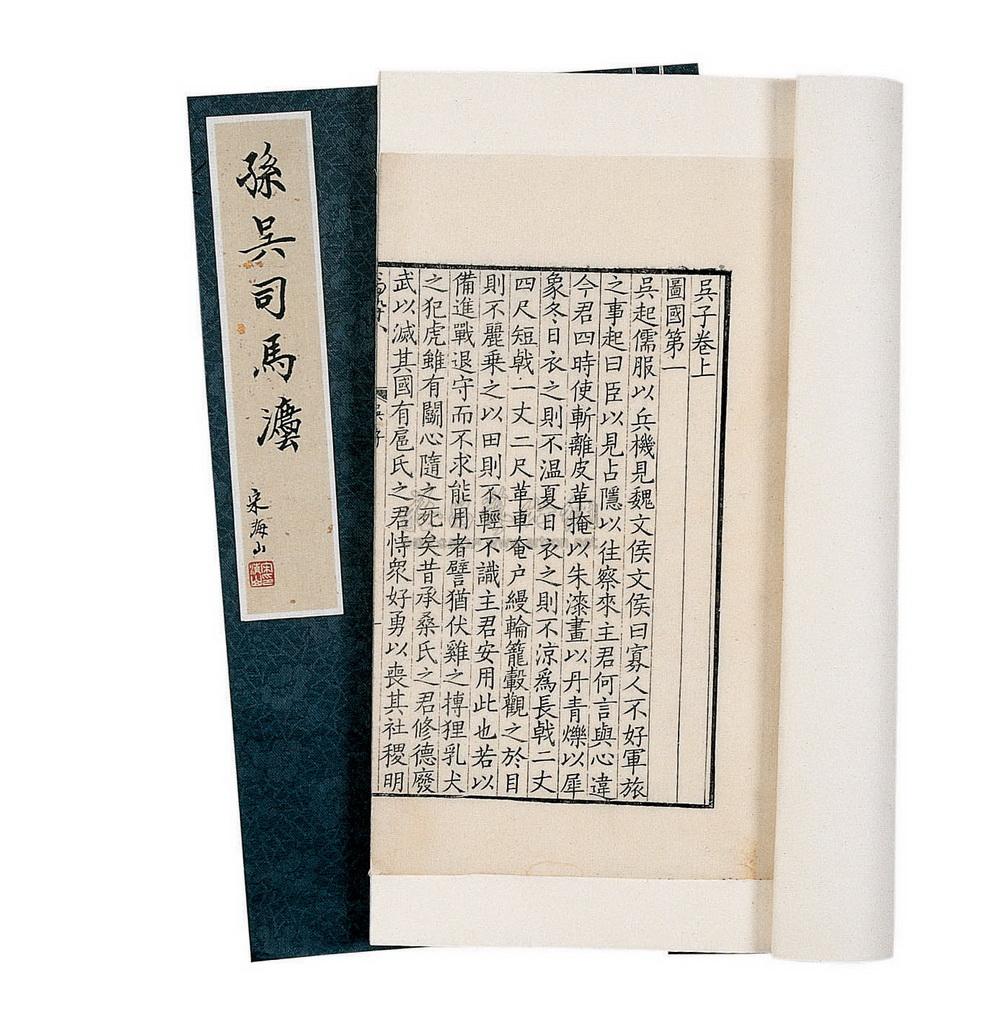 孫吳司馬灋
宋海山
吳子卷上
圖國第一
吳起儒服以兵機見魏文侯文侯曰寡人不好軍旅
之事起曰臣以見占隱以往察來主君何言與心違
今君四時使斬離皮革掩以朱漆畫以丹青爍以犀
象冬日衣之則不温夏日衣之則不涼爲長戟二丈
四尺短戟一丈二尺革車奄户縵輪籠轂觀之於目
則不麗乘之以田則不輕不識主君安用此也若以
備進戰退守而不求能用者譬猶伏雞之搏狸乳犬
之犯虎雖有鬬心隨之死矣昔承桑氏之君修德廢
武以滅其國有扈氏之君恃衆好勇以喪其社稷明
吳子